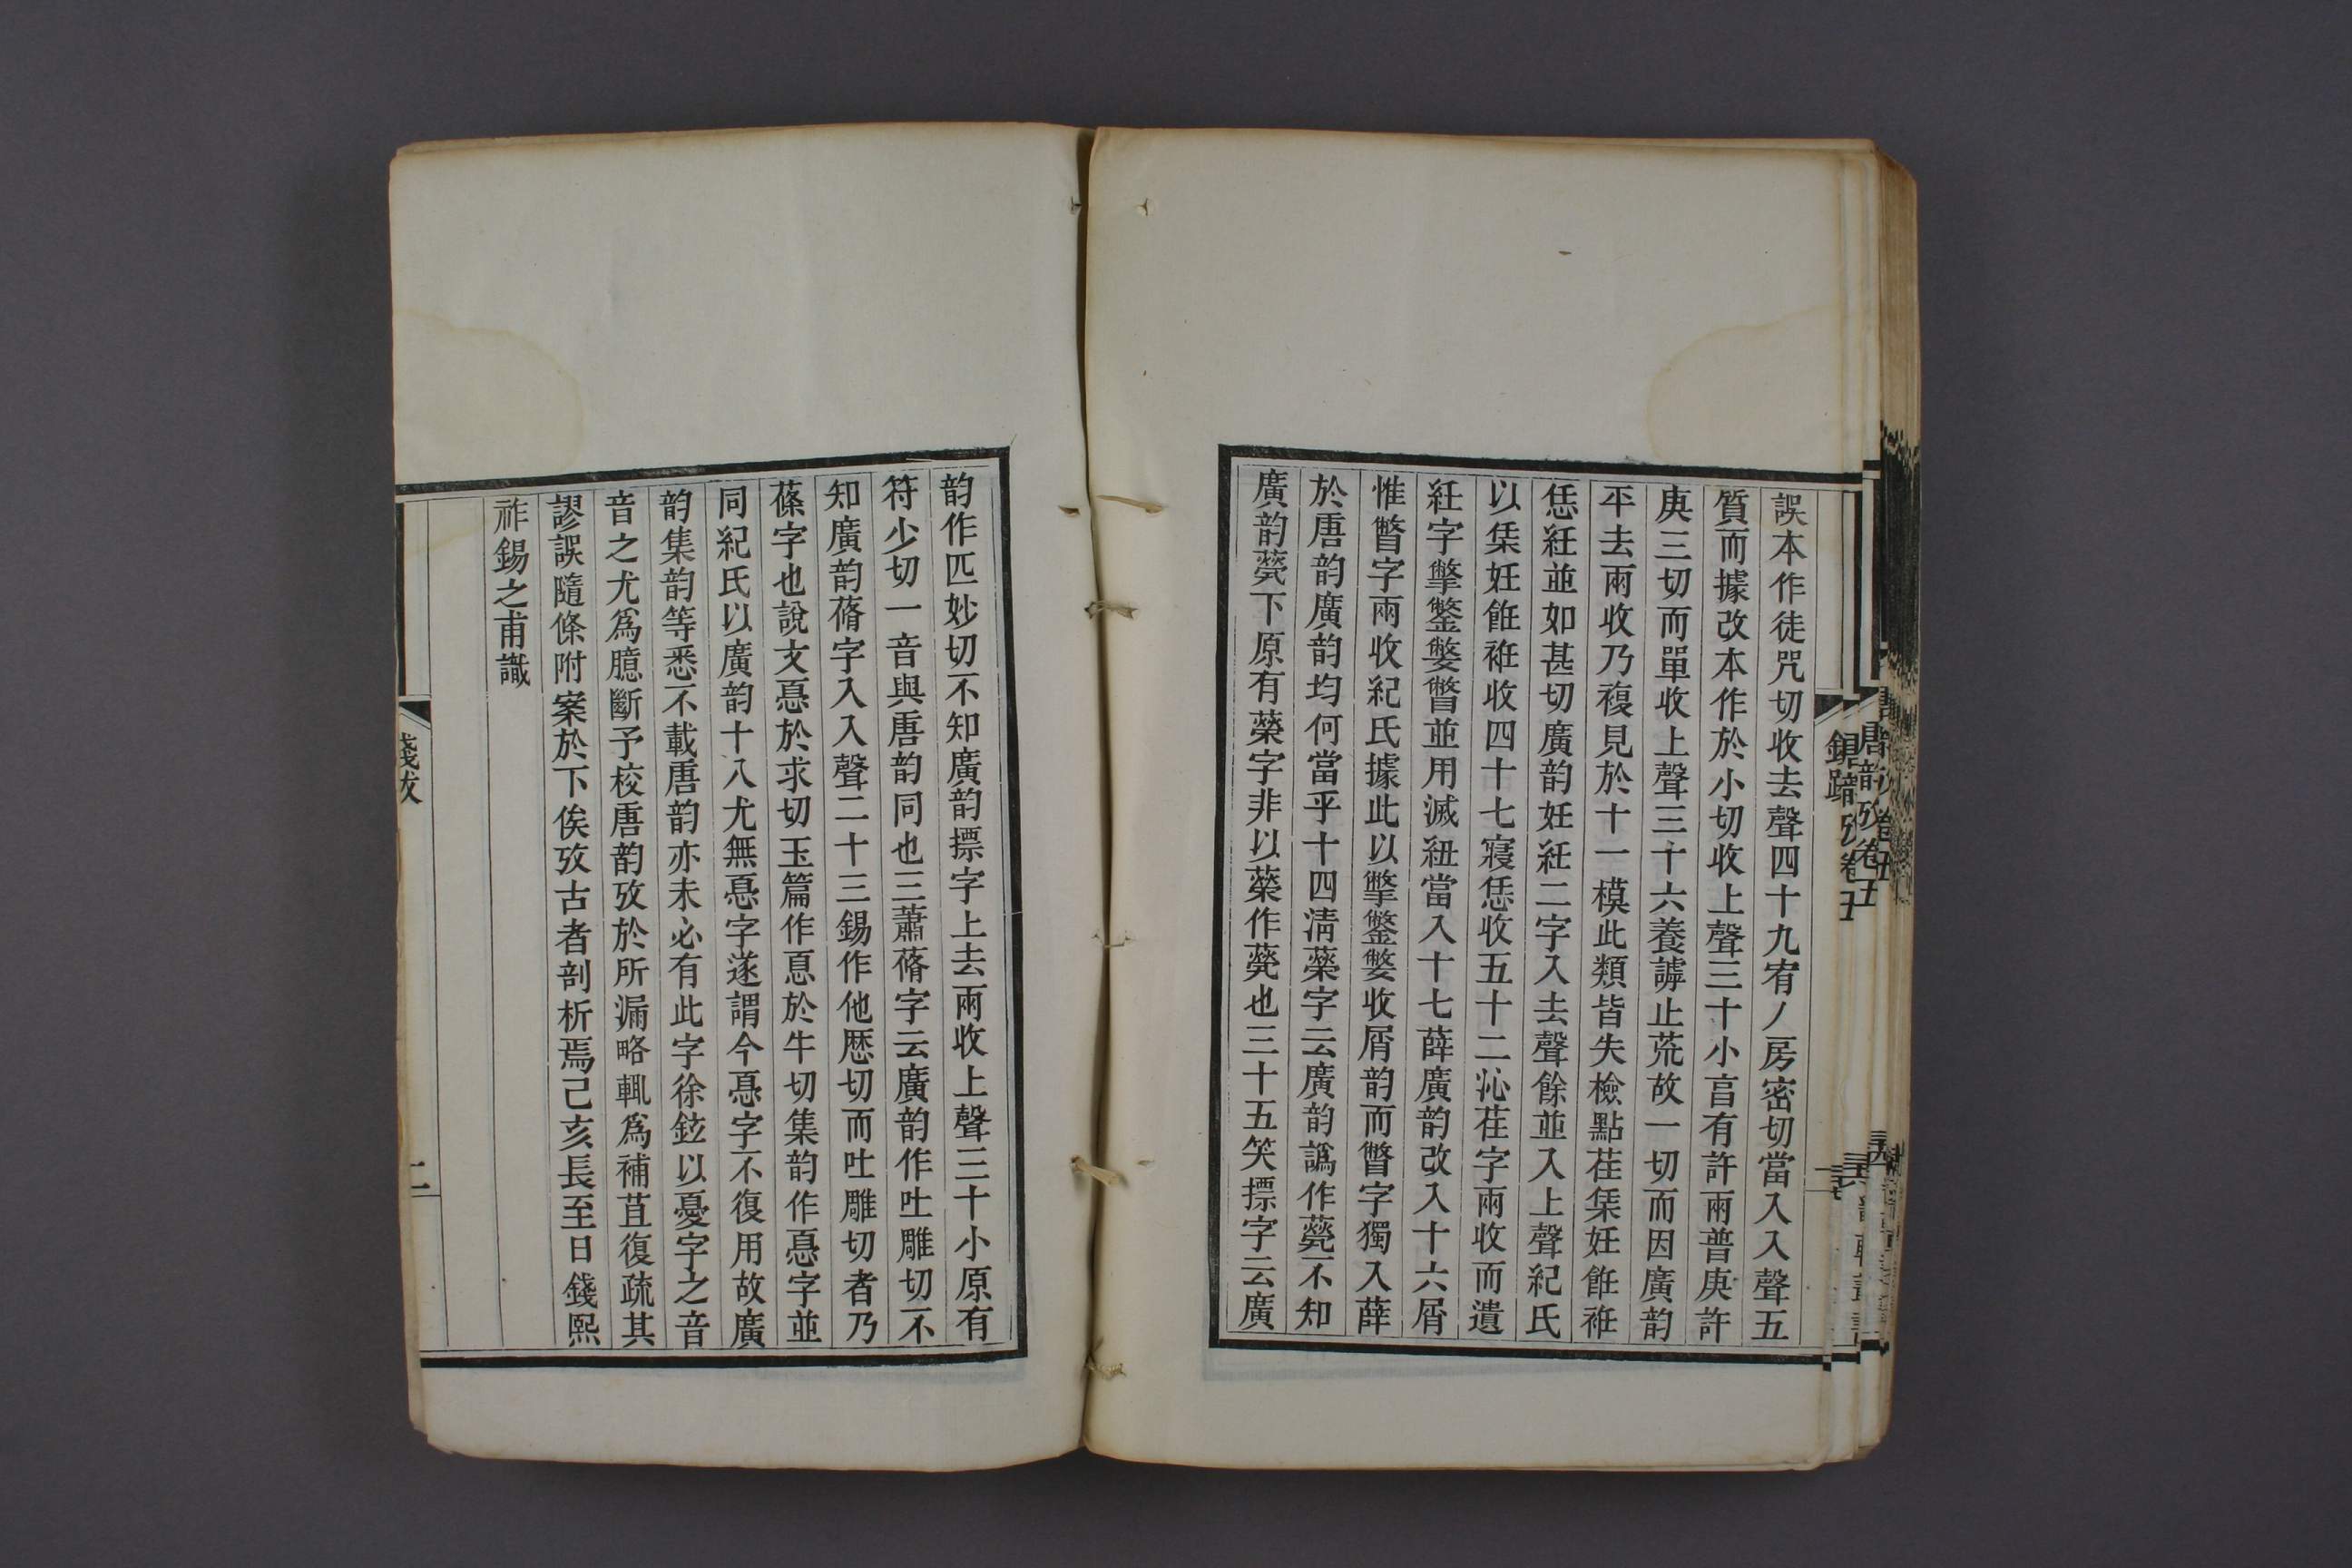 誤本作徒咒切收去聲四十九宥ノ房密切當入入聲五
質而據改本作於小切收上聲三十小亯有許兩普庚許
庚三切而單收上聲三十六養謼止荒故一切而因廣韵
平去兩收乃複見於十一模此類皆失檢點荏栠妊飪袵
恁紝並如甚切廣韵妊紝二字入去聲餘並入上聲紀氏
以栠妊飪袵收四十七寢恁收五十二沁荏字兩收而遺
紝字擎鐅嫳瞥並用滅紐當入十七薛廣韵改入十六屑
惟瞥字兩收紀氏據此以擎鐅嫳收屑韵而瞥字獨入薛
於唐韵廣韵均何當乎十四清藥字云廣韵譌作藑不知
廣韵藑下原有藥字非以藥作藑也三十五笑摽字云廣
韵作匹妙切不知廣韵摽字上去兩收上聲三十小原有
符少切一音與唐韵同也三蕭蓨字云廣韵作吐雕切不
知廣韵蓨字入入聲二十三錫作他歷切而吐雕切者乃
蓧字也說文惪於求切玉篇作惪於牛切集韵作惪字並
同紀氏以廣韵十八尤無惪字遂謂今惪字不復用故廣
韵集韵等悉不載唐韵亦未必有此字徐鉉以憂字之音
音之尤爲臆斷予校唐韵攷於所漏略輒爲補苴復疏其
謬誤隨條附案於下俟攷古者剖析焉己亥長至日錢熙
祚錫之甫識
錢跋
二
唐韵攷卷五